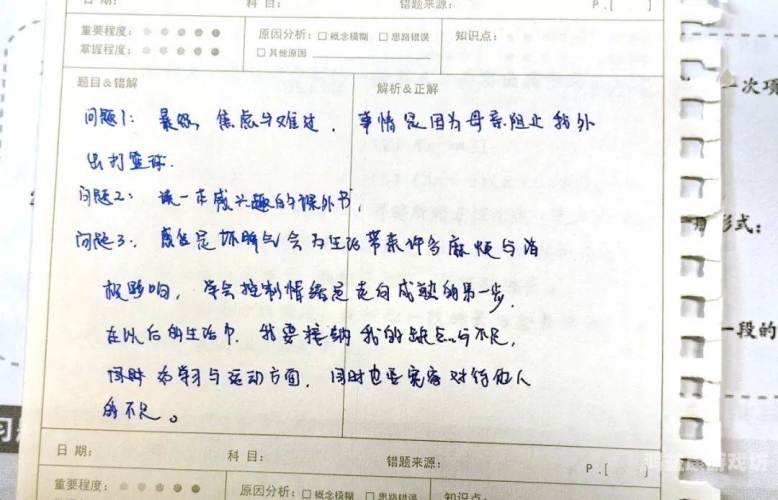 日期: 科目: 错题来源: P.[ ]
重要程度:
掌握程度:
原因分析: □ 概念模糊 □ 思路错误
□ 其他原因
知识点:
题目&错解 解析&正解
问题1: 暴怒, 焦虑与难过. 事情是因为母亲阻止我外
出打篮球.
问题2: 读一本感兴趣的课外书,
问题3. 感觉是坏脾气会为生活带来许多麻烦与消
极影响, 学会控制情绪是走向成熟的第一步.
在以后的生活中. 我要接纳我的缺点与不足,
同时 学习与运动方面, 同时也要宽容对待他人
的不足。
日期: 科目: 错题来源: P.[ ]
重要程度:
原因分析: □ 概念模糊 □ 思路错误
知识点:
一次项
形式:
一段的
习